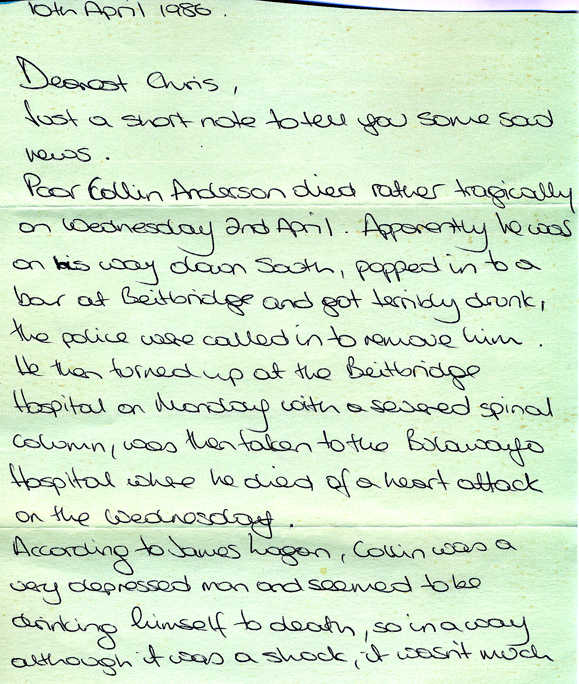 10th April 1986.
Dearest Chris,
Just a short note to tell you some sad
news.
Poor Collin Anderson died rather tragically
on Wednesday 2nd April. Apparently he was
on his way down South, popped in to a
bar at Beitbridge and got terribly drunk,
the police were called in to remove him.
He then turned up at the Beitbridge
Hospital on Monday with a severed spinal
column, was then taken to the Bulawayo
Hospital where he died of a heart attack
on the Wednesday.
According to James Logan, Collin was a
very depressed man and seemed to be
drinking himself to death, so in a way
although it was a shock, it wasn't much